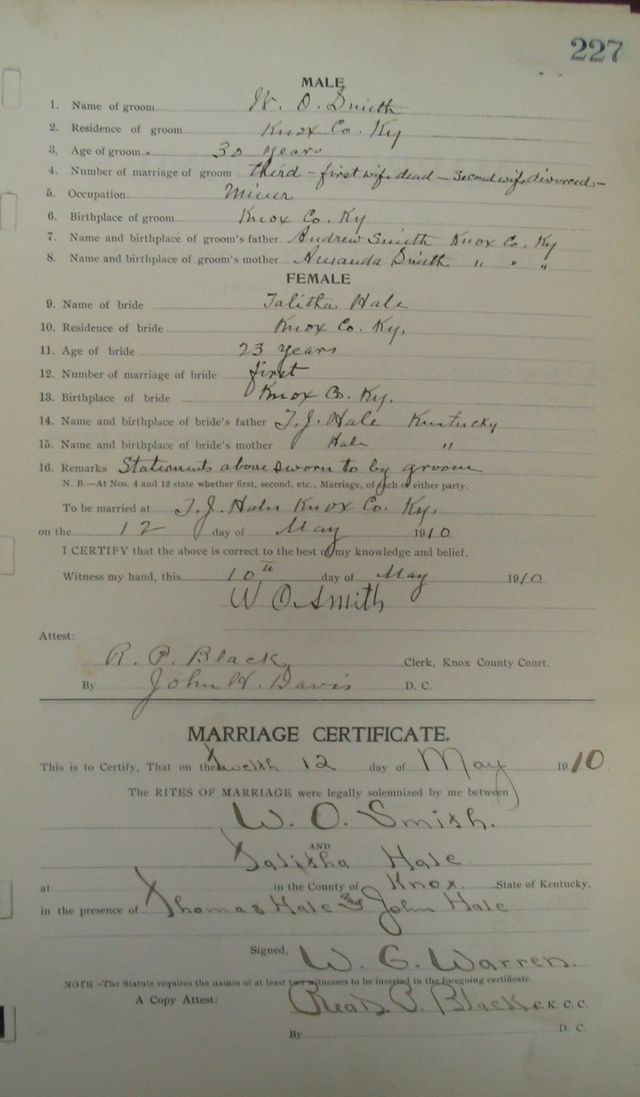 227
MALE
1. Name of groom W. O. Smith
2. Residence of groom Knox Co. Ky
3. Age of groom 30 years
4. Number of marriage of groom third - first wife dead - second wife divorced -
5. Occupation Miner
6. Birthplace of groom Knox Co. Ky
7. Name and birthplace of groom's father Andrew Smith Knox Co. Ky
8. Name and birthplace of groom's mother Amanda Smith " " "
FEMALE
9. Name of bride Talitha Hale
10. Residence of bride Knox Co. Ky.
11. Age of bride 23 years
12. Number of marriage of bride first
13. Birthplace of bride Knox Co. Ky.
14. Name and birthplace of bride's father T. J. Hale Kentucky
15. Name and birthplace of bride's mother Hale "
16. Remarks Statements above sworn to by groom
N. B.—At Nos. 4 and 12 state whether first, second, etc., Marriage, of each or either party.
To be married at T. J. Hales Knox Co. Ky.
on the 12 day of May 1910
I CERTIFY that the above is correct to the best of my knowledge and belief.
Witness my hand, this 10th day of May 1910
W O. Smith
Attest:
R. P. Black Clerk, Knox County Court.
By John H. Davis D. C.
MARRIAGE CERTIFICATE.
This is to Certify, That on the Twelth 12 day of May 1910
The RITES OF MARRIAGE were legally solemnized by me between
W. O. Smith.
AND
Talitha Hale
at in the County of Knox State of Kentucky,
in the presence of Thomas Hale John Hale
Signed, W. G. Warren.
NOTE—The Statute requires the names of at least two witnesses to be inserted in the foregoing certificate.
A Copy Attest: Read P. Black C. K. C. C.
By D. C.